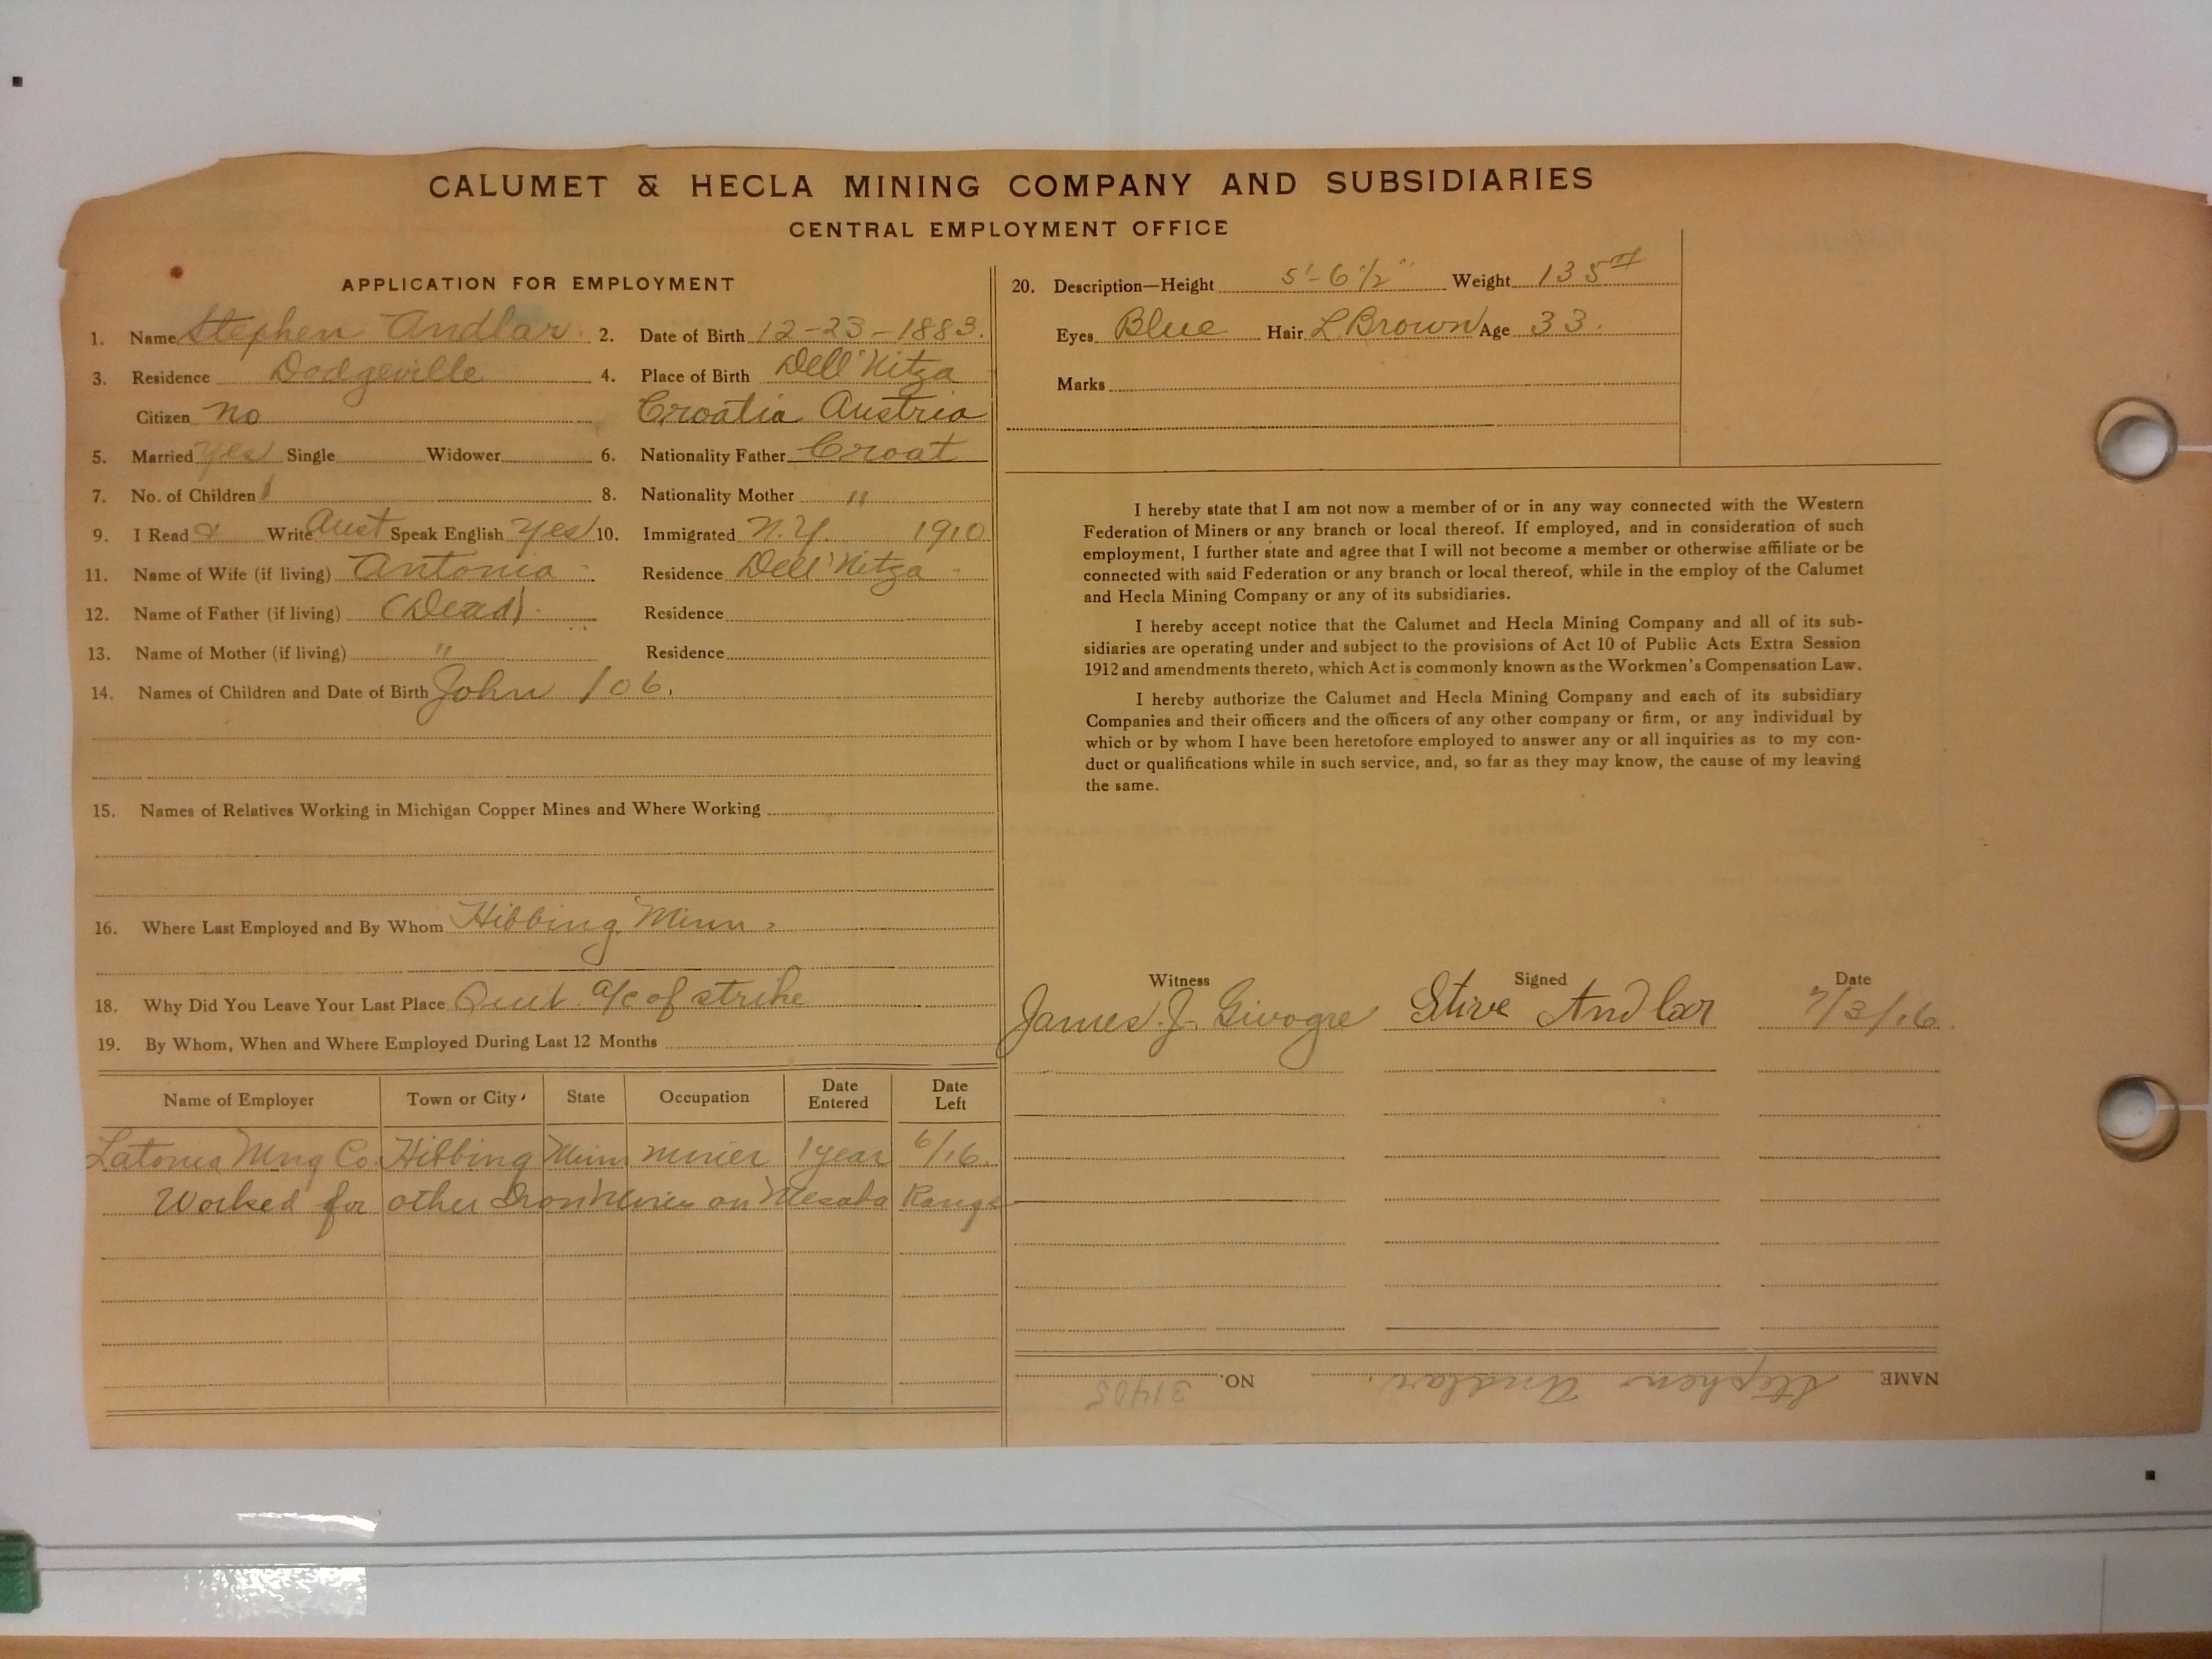 CALUMET & HECLA MINING COMPANY AND SUBSIDIARIES
CENTRAL EMPLOYMENT OFFICE
APPLICATION FOR EMPLOYMENT
1. Name Stephen Andlar. 2. Date of Birth 12-23-1883.
3. Residence Dodgeville 4. Place of Birth Dell'Nitza
Citizen no Croatia Austria
5. Married yes Single Widower 6. Nationality Father Croat
7. No. of Children 1 8. Nationality Mother "
9. I Read & Write Aust Speak English yes 10. Immigrated N.Y. 1910
11. Name of Wife (if living) Antonia Residence Dell'Nitza
12. Name of Father (if living) (Dead) Residence
13. Name of Mother (if living) " Residence
14. Names of Children and Date of Birth John 106.
15. Names of Relatives Working in Michigan Copper Mines and Where Working
16. Where Last Employed and By Whom Hibbing Minn.
18. Why Did You Leave Your Last Place Quit a/c of strike
19. By Whom, When and Where Employed During Last 12 Months
Name of Employer Town or City State Occupation Date Entered Date Left
Latonia Mng Co. Hibbing Minn miner 1 year 6/16.
Worked for other Iron Mines on Mesaba Range
20. Description—Height 5'-6 1/2" Weight 135#
Eyes Blue Hair L Brown Age 33.
Marks
I hereby state that I am not now a member of or in any way connected with the Western
Federation of Miners or any branch or local thereof. If employed, and in consideration of such
employment, I further state and agree that I will not become a member or otherwise affiliate or be
connected with said Federation or any branch or local thereof, while in the employ of the Calumet
and Hecla Mining Company or any of its subsidiaries.
I hereby accept notice that the Calumet and Hecla Mining Company and all of its sub-
sidiaries are operating under and subject to the provisions of Act 10 of Public Acts Extra Session
1912 and amendments thereto, which Act is commonly known as the Workmen's Compensation Law.
I hereby authorize the Calumet and Hecla Mining Company and each of its subsidiary
Companies and their officers and the officers of any other company or firm, or any individual by
which or by whom I have been heretofore employed to answer any or all inquiries as to my con-
duct or qualifications while in such service, and, so far as they may know, the cause of my leaving
the same.
Witness Signed Date
James J. Givogre Stive Andlar 7/3/16.
NAME Stephen Andlar. NO. 31405